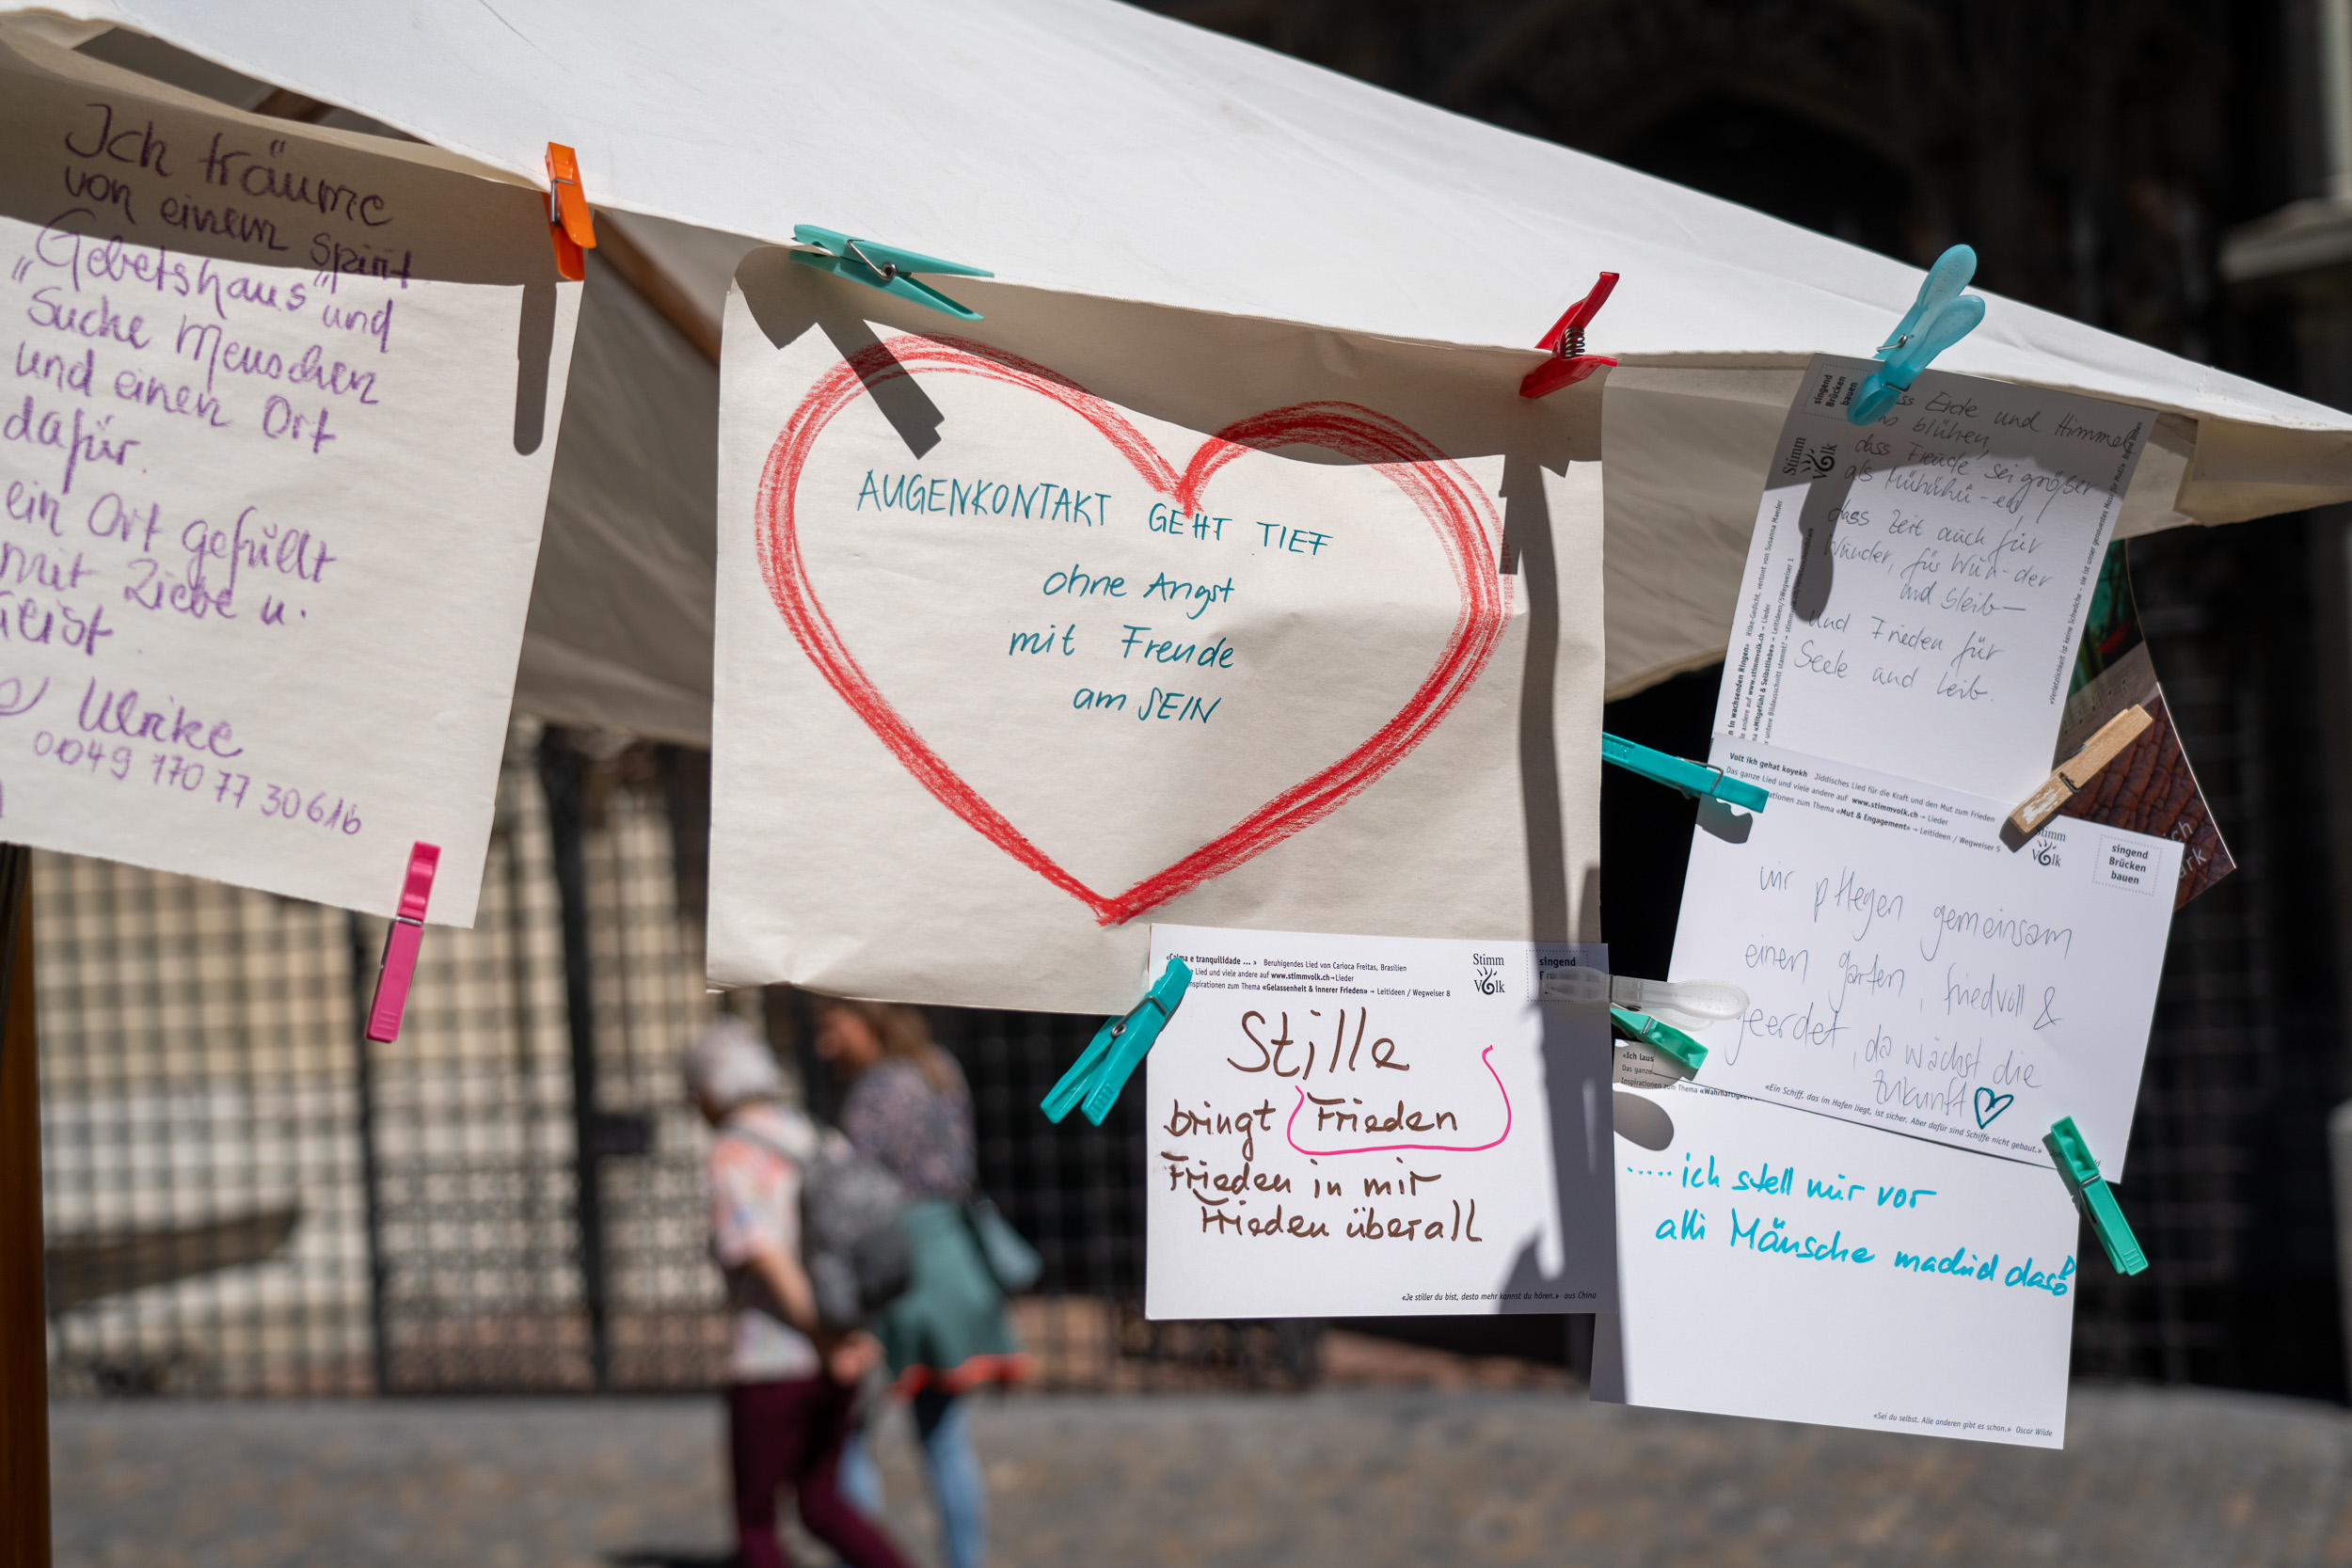 Ich träume
von einem spirit
"Gebetshaus" und
Suche Menschen
und einen Ort
dafür.
ein Ort gefüllt
mit Liebe u.
Geist
Ulrike
0049 170 77 30616
AUGENKONTAKT GEHT TIEF
ohne Angst
mit Freude
am SEIN
«Calma e tranquilidade ...» Beruhigendes Lied von Carioca Freitas, Brasilien
Lied und viele andere auf www.stimmvolk.ch → Lieder
Inspirationen zum Thema «Gelassenheit & innerer Frieden» → Leitideen / Wegweiser 8
Stimm
Volk
singend
Stille
bringt Frieden
Frieden in mir
Frieden überall
«Je stiller du bist, desto mehr kannst du hören.» aus China
singend
Brücken
bauen
Stimm
Volk
Erde und Himmel
blühen,
dass Freude sei größer
als Mühühü-en,
dass Zeit auch für
Wunder, für Wun-der
und bleib—
Und Frieden für
Seele und Leib.
In wachsenden Ringen» Rilke-Gedicht, vertont von Susanna Maeder
andere auf www.stimmvolk.ch → Lieder
«Mitgefühl & Selbstliebe» → Leitideen / Wegweiser 1
«Verletzlichkeit ist keine Schwäche – sie ist unser genauestes Mass für Mut.»
Volt ikh gehat koyekh Jiddisches Lied für die Kraft und den Mut zum Frieden
Das ganze Lied und viele andere auf www.stimmvolk.ch → Lieder
zum Thema «Mut & Engagement» → Leitideen / Wegweiser 5
Stimm
Volk
singend
Brücken
bauen
wir pflegen gemeinsam
einen garten, friedvoll &
geerdet, da wächst die
Zukunft
«Ein Schiff, das im Hafen liegt, ist sicher. Aber dafür sind Schiffe nicht gebaut.»
«Ich
Das ganze
Inspirationen zum Thema «Wahrhaftigkeit
..... ich stell mir vor
alli Mänsche machid das!
«Sei du selbst. Alle anderen gibt es schon.» Oscar Wilde